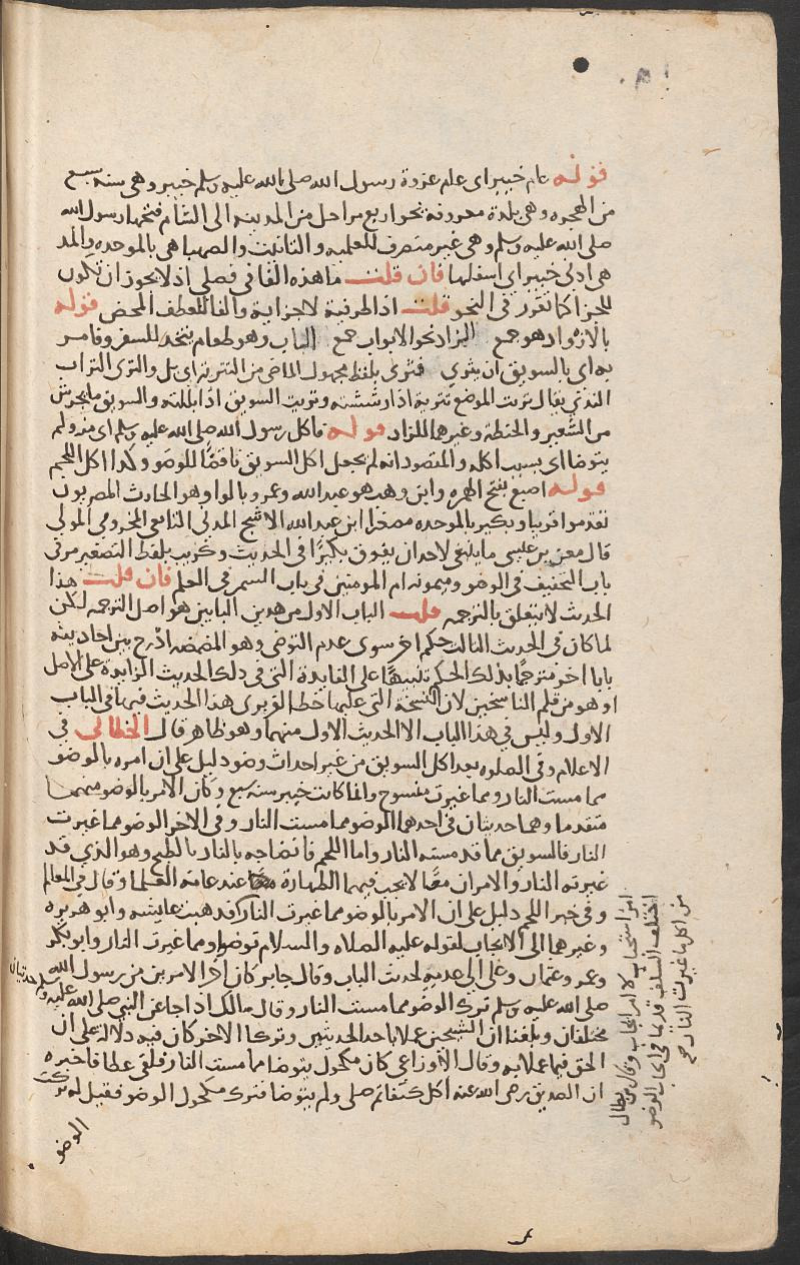 قوله عام خيبر اى عام غزوة رسول الله صلى الله عليه وسلم خيبر وهى سنه سبع
من الهجره وهى بلدة معروفه نحو اربع مراحل من المدينه الى الشام فتحها رسول الله
صلى الله عليه وسلم وهى غير منصرف للعلميه والتانيث والصهبا هى بالموحده والمد
هى ادنى خيبر اى اسفلها فان قلت ما هذه الفا فى فصلى اذ لا يجوز ان تكون
للجزا كما تقرر فى النحو قلت اذا ظرفية لا جزاية والفا للعطف المحض قوله
بالازواد هو جمع الزاد نحو الابواب جمع الباب وهو طعام يتخذ للسفر وفامر
به اى بالسويق ان يثرى فثرى بلفظ مجهول الماضى من التثرية اى بل والثرى التراب
الندى يقال ثريت الموضع تثرية اذا رششته وثريت السويق اذا بللته والسويق ما يجرش
من الشعير والحنطة وغيرهما للزاد قوله فاكل رسول الله صلى الله عليه وسلم اى منه ولم
يتوضا اى بسبب اكله والمقصود انه لم يجعل اكل السويق ناقضا للوضو وكذا اكل اللحم
قوله اصبغ بفتح الهمزه وابن وهب هو عبد الله وعمرو بالواو هو الحارث المصريون
تقدموا قريبا وبكير بالموحده مصغرا ابن عبد الله الاشج المدنى التابعى المخزومى المولى
قال معن بن عيسى ما ينبغى لاحد ان يفوق بكيرا فى الحديث وكريب بلفظ التصغير مر فى
باب التخفيف فى الوضو وميمونه ام المومنين فى باب السمر فى العلم فان قلت هذا
الحديث لا يتعلق بالترجمه قلت الباب الاول من هذين البابين هو اصل الترجمه لكن
لما كان فى الحديث الثالث حكم اخر سوى عدم التوضى وهو المضمضه ادرج بين احاديثه
بابا اخر مترجما بذلك الحكم تنبيها على الفايدة التى فى ذلك الحديث الزايدة على الاصل
او هو من قلم الناسخين لان النسخة التى عليها خط الفربرى هذا الحديث فيها فى الباب
الاول وليس فى هذا الباب الا الحديث الاول منهما وهو ظاهر قال الخطابى فى
الاعلام وفى الصلوه بعد اكل السويق من غير احداث وضو دليل على ان امره بالوضو
مما مست النار ومما غيرت منسوخ وانما كانت خيبر سنه سبع وكان الامر بالوضو منهما
متقدما وهما حديثان فى احدهما الوضو مما مست النار وفى الاخر الوضو مما غيرت
النار فالسويق مما قد مسته النار واما اللحم فانضاجه بالنار بالطبخ وهو الذى قد
غيرته النار والامران معا لا يجب فيهما الطهارة عند عامة العلما وقال فى المعالم
وفى خبر اللحم دليل على ان الامر بالوضو مما غيرت النار فذهبت عايشه وابو هريره
وغيرهما الى الايجاب لقوله عليه الصلاه والسلام توضوا مما غيرت النار وابو بكر
وعمر وعثمان وعلى الى عدمه لحديث الباب وقال جابر كان اخر الامرين من رسول الله
صلى الله عليه وسلم ترك الوضو مما مست النار وقال مالك اذا جا عن النبى صلى الله عليه وسلم حديثان
مختلفان وبلغنا ان الشيخين عملا باحد الحديثين وتركا الاخر كان فيه دلالة على ان
الحق فيما عملا به وقال الاوزاعى كان مكحول يتوضا مما مست النار فلقى عطا فاخبره
ان الصديق رضى الله عنه اكل كتفا ثم صلى ولم يتوضا فترك مكحول الوضو فقيل له تركت
الوضو
امر استحباب لا امر ايجاب وقال ابن بطال
اختلف السلف قديما فى ايجاب الوضو
من اكل ما غيرت النار صح